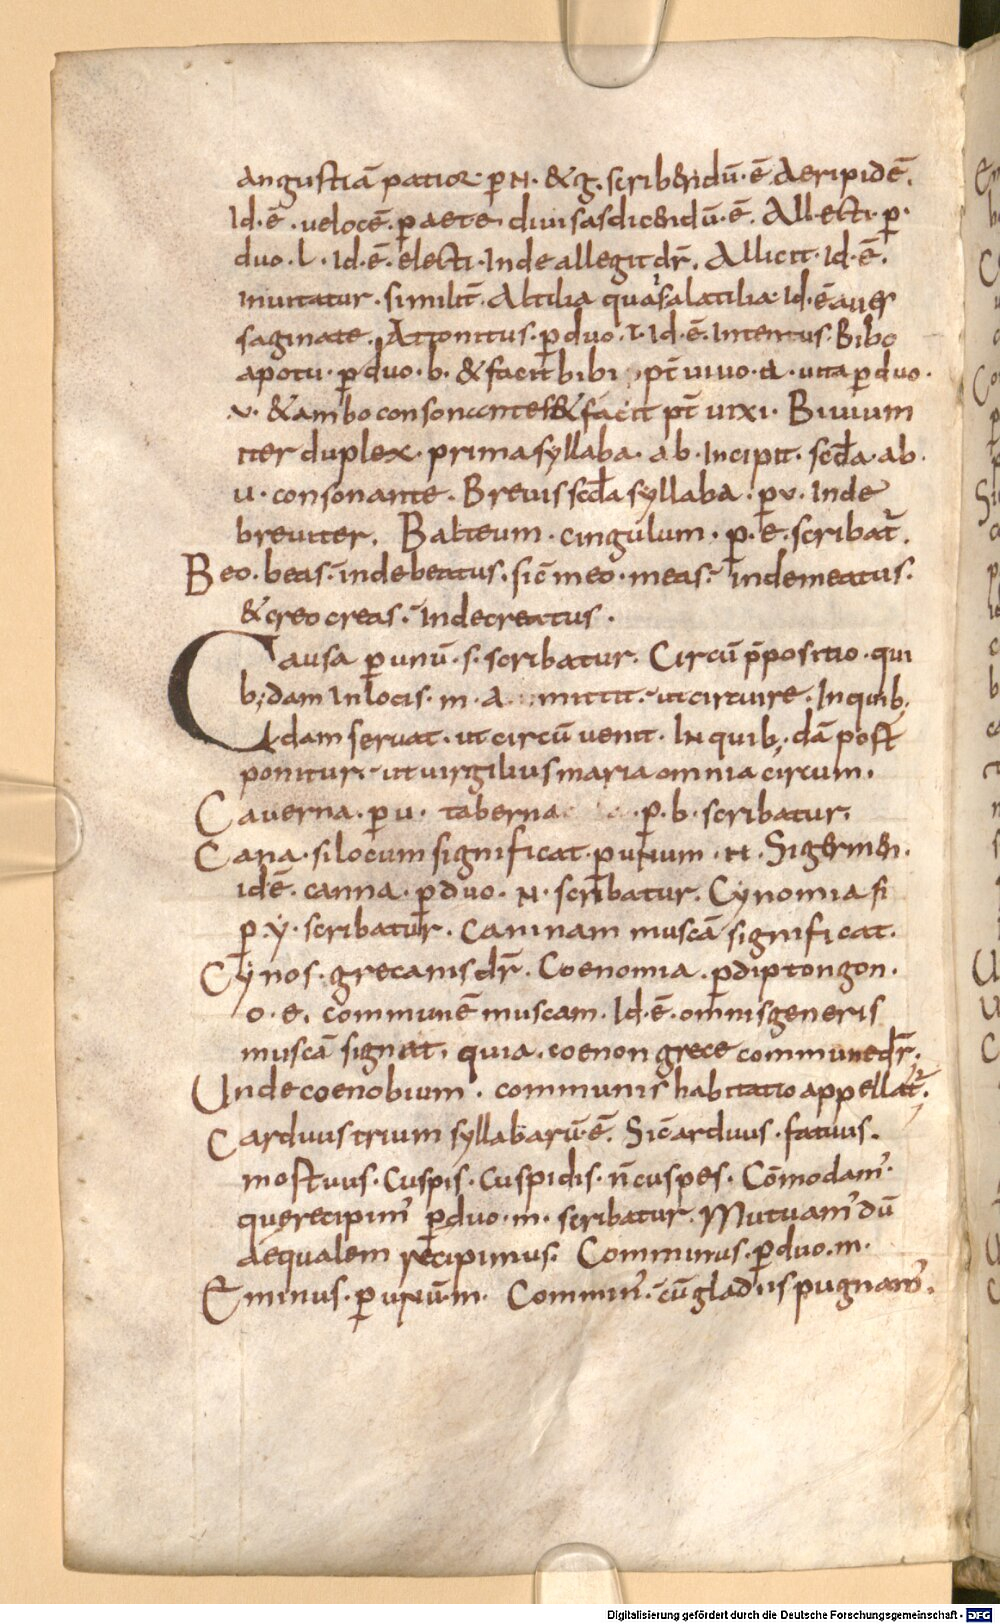 angustiā patior· p̲ N· &g· scrib&ndū·ē Aeripidē·
Id·ē· velocē· p̲ aete diuisas dicendū·ē· Allecti· p̲·
duo·l· Id·ē· electi· Inde allegit dr̄· Allicit· Id·ē·
Inuitatur· similit̄· Altilia quasi alatilia· Id·ē aues
saginate· Attonitus· p̲ duo·t· Id·ē· Intentus· Bibo
apotu· p̲ duo·b· &facit bibi pt̄ uiuo· a· uita p̲ duo·
v· &ambo consonantes &facit pt̄ uixi· Biuium
iter duplex· prima syllaba· ab· Incipit· scd̄a· ab·
u· consonante· Breuis scd̄a syllaba· p̲ v· Inde
breuiter· Balteum· cingulum· p̲·e· scribat̄·
Beo· beas· inde beatus· sic meo· meas· inde meatus·
&creo creas· Inde creatus·
Causa p̲ unū·s· scribatur· Circū p̄positio· qui
b;dam In locis· m· a mittit· ut circuire· In quib;
dam seruat· ut circū uenit· IN quib; dā post
ponitur· ut uirgilius maria omnia circum·
Cauerna· p̲ u· taberna p̲·b· scribatur·
Cana· si locum significat· p̲ uNum·N· Si germen·
id·ē· canna· p̲ duo·N· scribatur· Cynomia si
p̲·y· scribatur· Caninam muscā significat·
Cynos· grece canis dr̄· Coenomia· p̲ diptongon·
o·e· communē muscam· Id·ē· omnis generis
muscā signat· quia· coenon grece commune dr̄·
Unde coenobium· communis habitatio appellat̄·
Carduus trium syllabarū·ē· Sic arduus· fatuus·
mostuus· Cuspis· Cuspidis· n̄ cuspes· Cōmodam'
que recipim' p̲ duo·m· scribatur· Mutuam' dū
aequalem recipimus· Comminus· p̲ duo·m·
Eminus· p̲ uNū·m· Commin'· cū gladiis pugnam'·
Digitalisierung gefördert durch die Deutsche Forschungsgemeinschaft - DFG